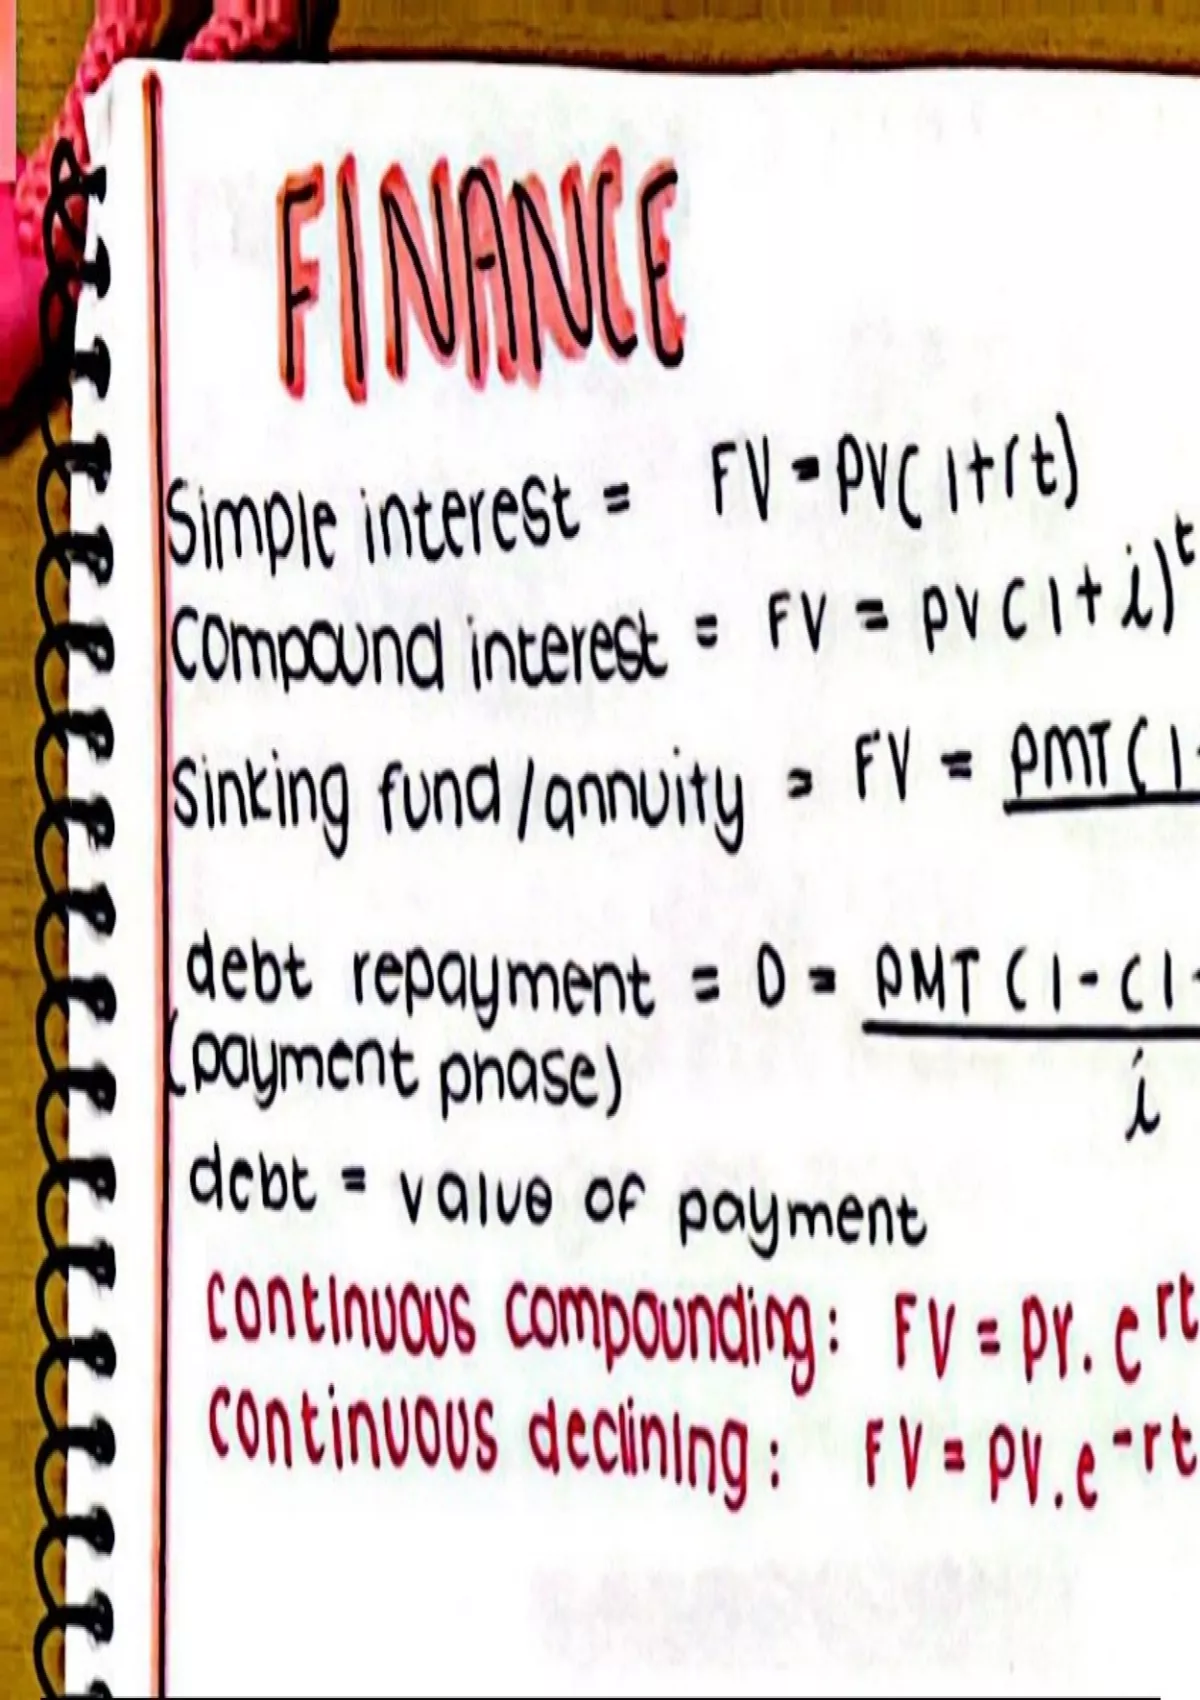 FINANCE
Simple interest = FV = PV(1+rt)
Compound interest = FV = PV(1+i)^t
Sinking fund/annuity = FV = PMT(1
debt repayment = D = PMT(1-(1
i
(payment phase)
debt = value of payment
continuous compounding: FV = PV.e^rt
continuous declining: FV = PV.e^-rt